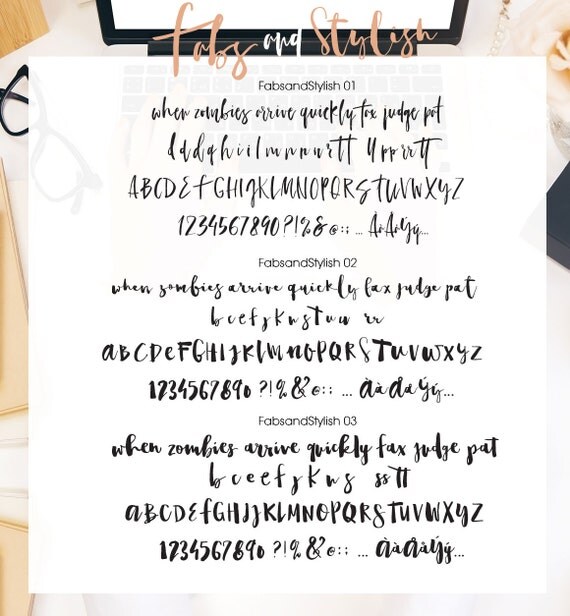 Fabs and Stylish
FabsandStylish 01
when zombies arrive quickly fax judge pat
ABCDEFGHIJKLMNOPQRSTUVWXYZ
1234567890?!%&@:; ... ÀàÂâÝý...
FabsandStylish 02
when zombies arrive quickly fax judge pat
b c e f z k w s T u w rr
aBCDeFGHIJKLMNOPQRSTUVWXYZ
1234567890 ?!%&@:; ... ÀàÂâÝý...
FabsandStylish 03
when zombies arrive quickly fax judge pat
b c e e f z k w s ss tt
aBCDEFGHIJKLMNOPQRSTUVWXYZ
1234567890 ?!%&@:; ... ÀàÂâÝý...